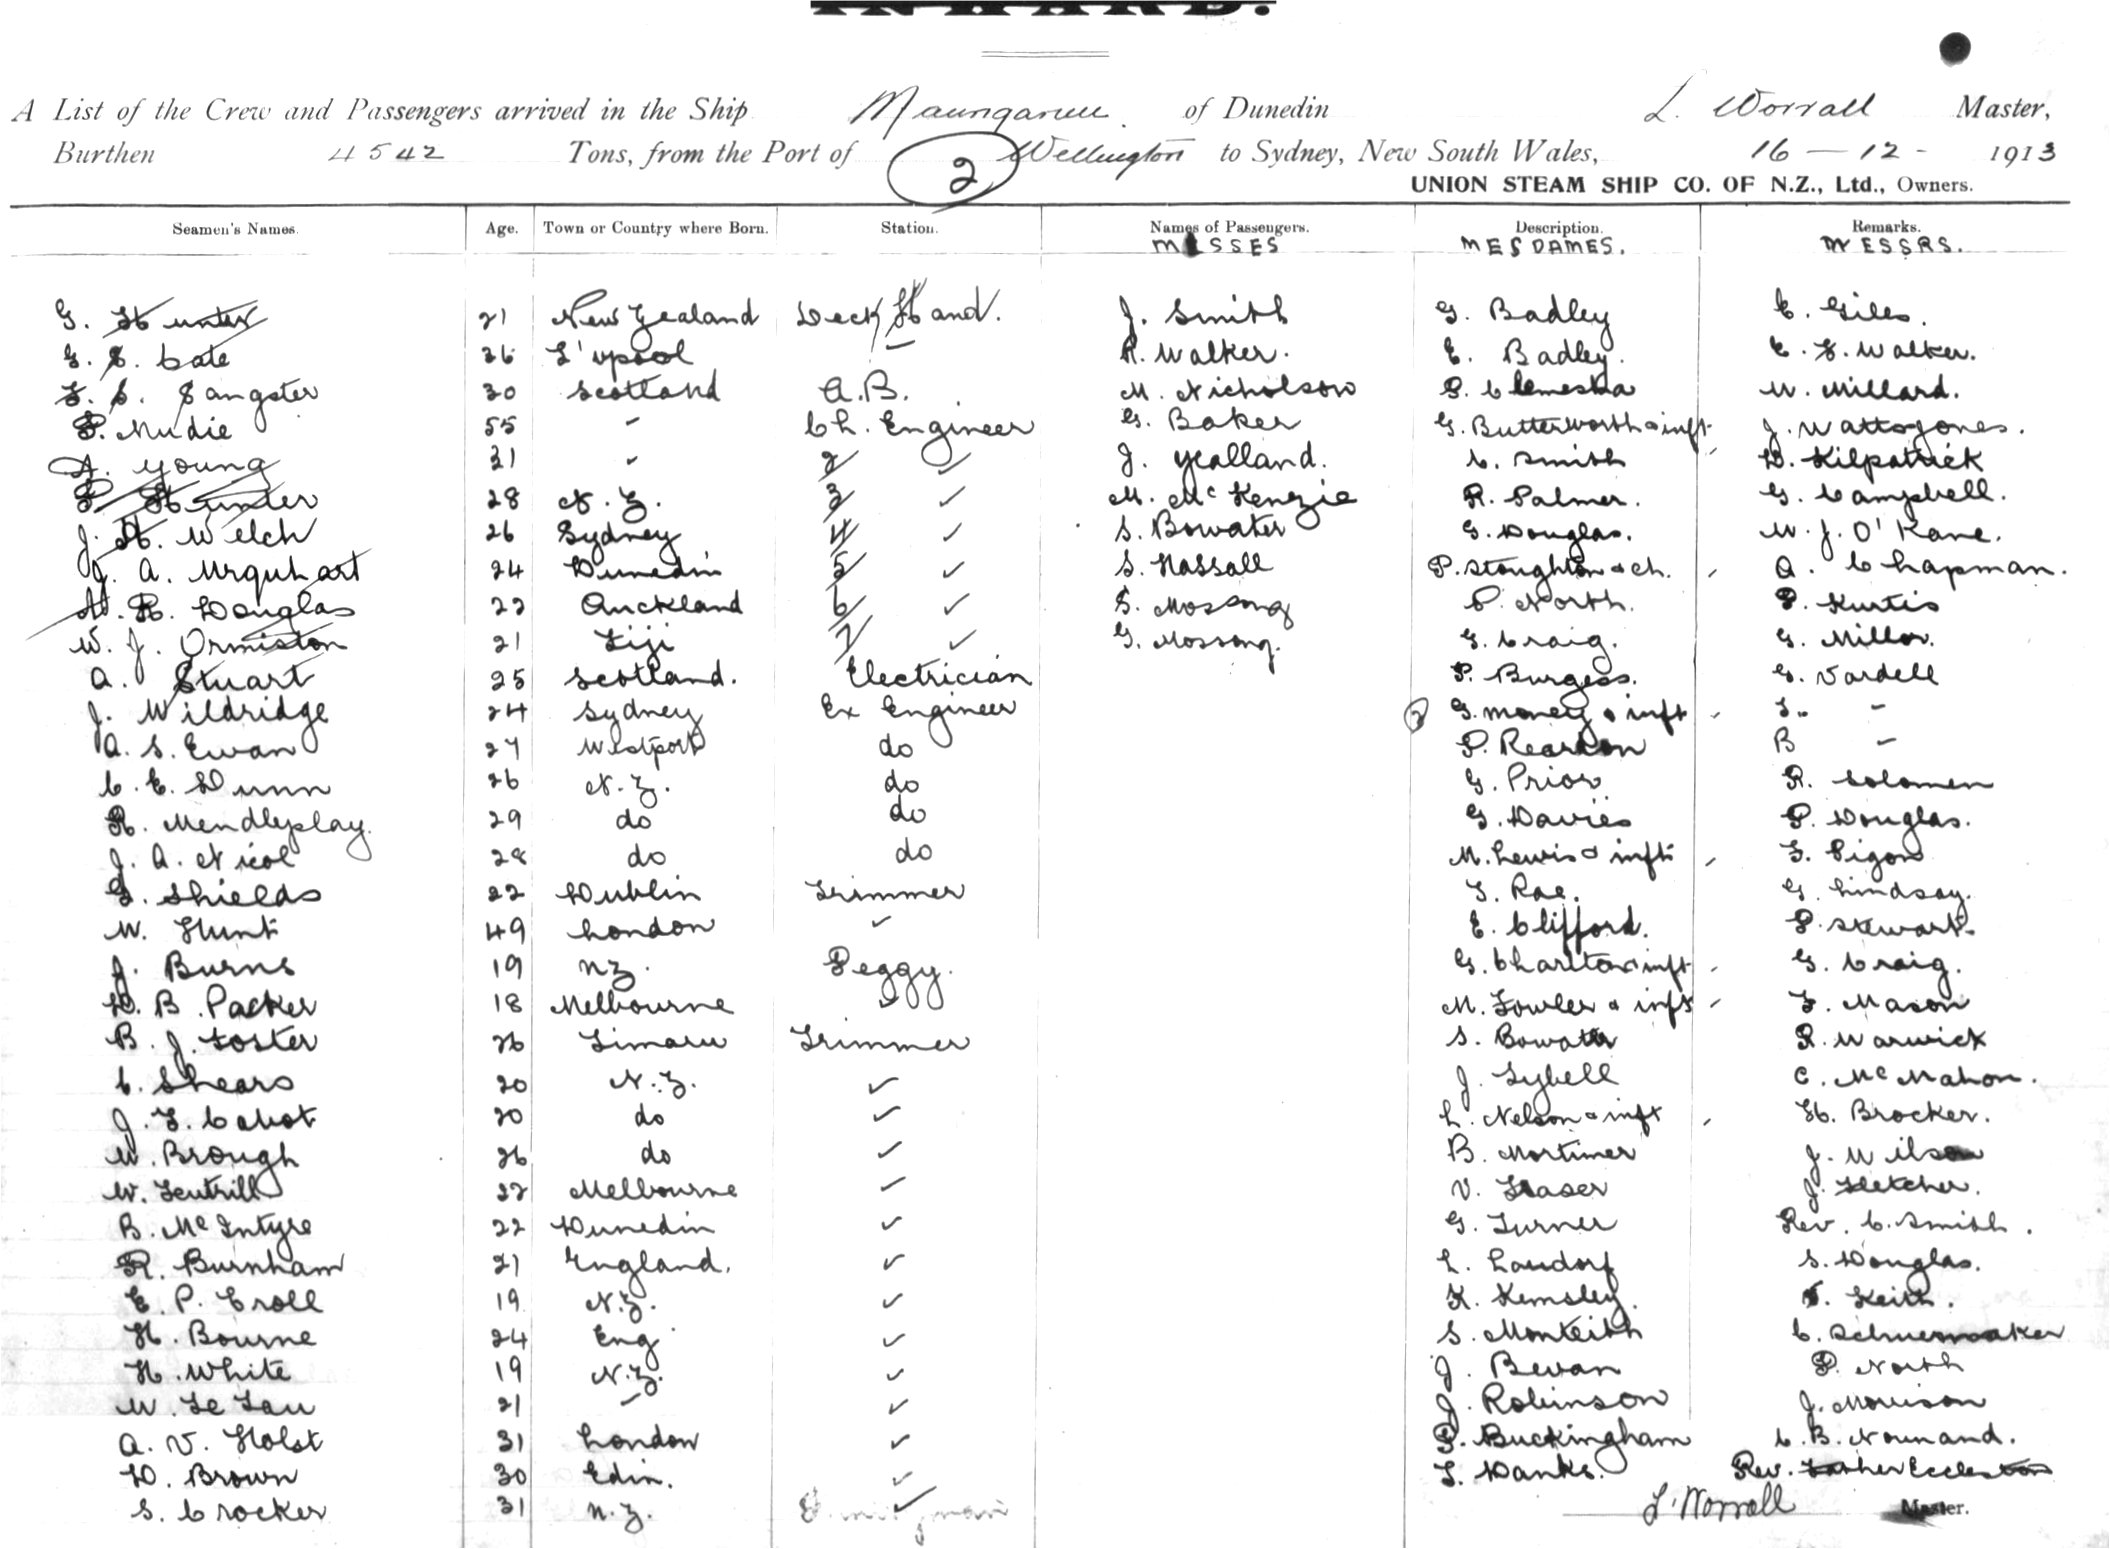 INWARD.
A List of the Crew and Passengers arrived in the Ship Maunganui of Dunedin L. Worrall Master,
Burthen 4542 Tons, from the Port of 2 Wellington to Sydney, New South Wales, 16 — 12 - 1913
UNION STEAM SHIP CO. OF N.Z., Ltd., Owners.
Seamen's Names. Age. Town or Country where Born. Station. Names of Passengers. Description. Remarks.
MISSES MESDAMES. MESSRS.
G. Hunter 21 New Zealand Deck Hand. J. Smith G. Badley E. Giles.
G. S. Cate 26 L'pool - R. Walker. E. Badley. E. F. Walker.
F. S. Sangster 30 Scotland A.B. M. Nicholson P. Clemesha W. Millard.
P. Mudie 55 - Ch. Engineer G. Baker G. Butterworth & inft J. Watts Jones.
A. Young 31 - 2 ✓ J. Yealland. C. Smith D. Kilpatrick
P. Hunter 28 N.Z. 3 ✓ M. McKenzie R. Palmer. G. Campbell.
J. H. Welch 26 Sydney 4 ✓ S. Bowater G. Douglas. W. J. O'Kane.
J. A. Urquhart 24 Dunedin 5 ✓ S. Hassall P. Stoughton & ch. A. Chapman.
H. R. Douglas 22 Auckland 6 ✓ S. Mossong P. North. P. Kurtis
W. J. Ormiston 21 Fiji 7 ✓ G. Mossong. G. Craig. G. Millar.
A. Stuart 25 Scotland. Electrician P. Burgess. G. Vardell
J. Wildridge 24 Sydney Ex Engineer 2 G. Money & inft L. -
A. S. Ewan 27 Westport do P. Reardon B -
C. E. Dunn 26 N.Z. do G. Prior R. Solomen
R. Mendlyslay. 29 do do G. Davies P. Douglas.
J. A. Nicol 28 do do M. Lewis & inft F. Pigon
G. Shields 22 Dublin Trimmer T. Rae. G. Lindsay.
W. Hunt 49 London ✓ E. Clifford. P. Stewart.
J. Burns 19 NZ. Peggy. G. Charlton & inft G. Craig.
D. B. Packer 18 Melbourne ✓ M. Fowler & inft F. Mason
B. J. Foster 26 Timaru Trimmer S. Bowater R. Warwick
C. Shears 20 N.Z. ✓ J. Sybell C. McMahon.
J. F. Cabot 20 do ✓ L. Nelson & inft H. Brocker.
W. Brough 26 do ✓ B. Mortimer J. Wilson
W. Feutrill 22 Melbourne ✓ V. Fraser J. Fletcher.
B. McIntyre 22 Dunedin ✓ G. Turner Rev. C. Smith.
R. Burnham 21 England. ✓ L. Laudorf S. Douglas.
E. P. Croll 19 N.Z. ✓ K. Kemsley. Keith.
H. Bourne 24 Eng ✓ S. Monteith C. Schuermaker
H. White 19 N.Z. ✓ J. Bevan P. North
W. Te Tau 21 - ✓ J. Robinson J. Morrison
A. V. Holst 31 London ✓ P. Buckingham C. B. Nounand.
D. Brown 30 Edin. ✓ T. Danks. Rev. Father Eccleston
S. Crocker 31 N.Z. ✓ L. Worrall Master.